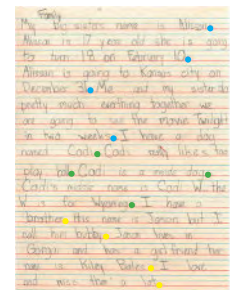 Family
My big sister's name is Allison.
Allison is 17 years old she is going
to turn 18 on February 10.
Allison is going to Kansas city on
December 31. Me and my sister do
pretty much everthing together we
are going to see the movie Twilight
in two weeks. I have a dog
named Codi. Codi really likes to
play ball. Codi is a nice dog.
Codi's middle name is Codi W the
W is for Wyoming. I have a
brother. His name is Jason but I
call him bubby. Jason lives in
and has a girlfriend her
name is Kiley. I love
and miss them a lot.